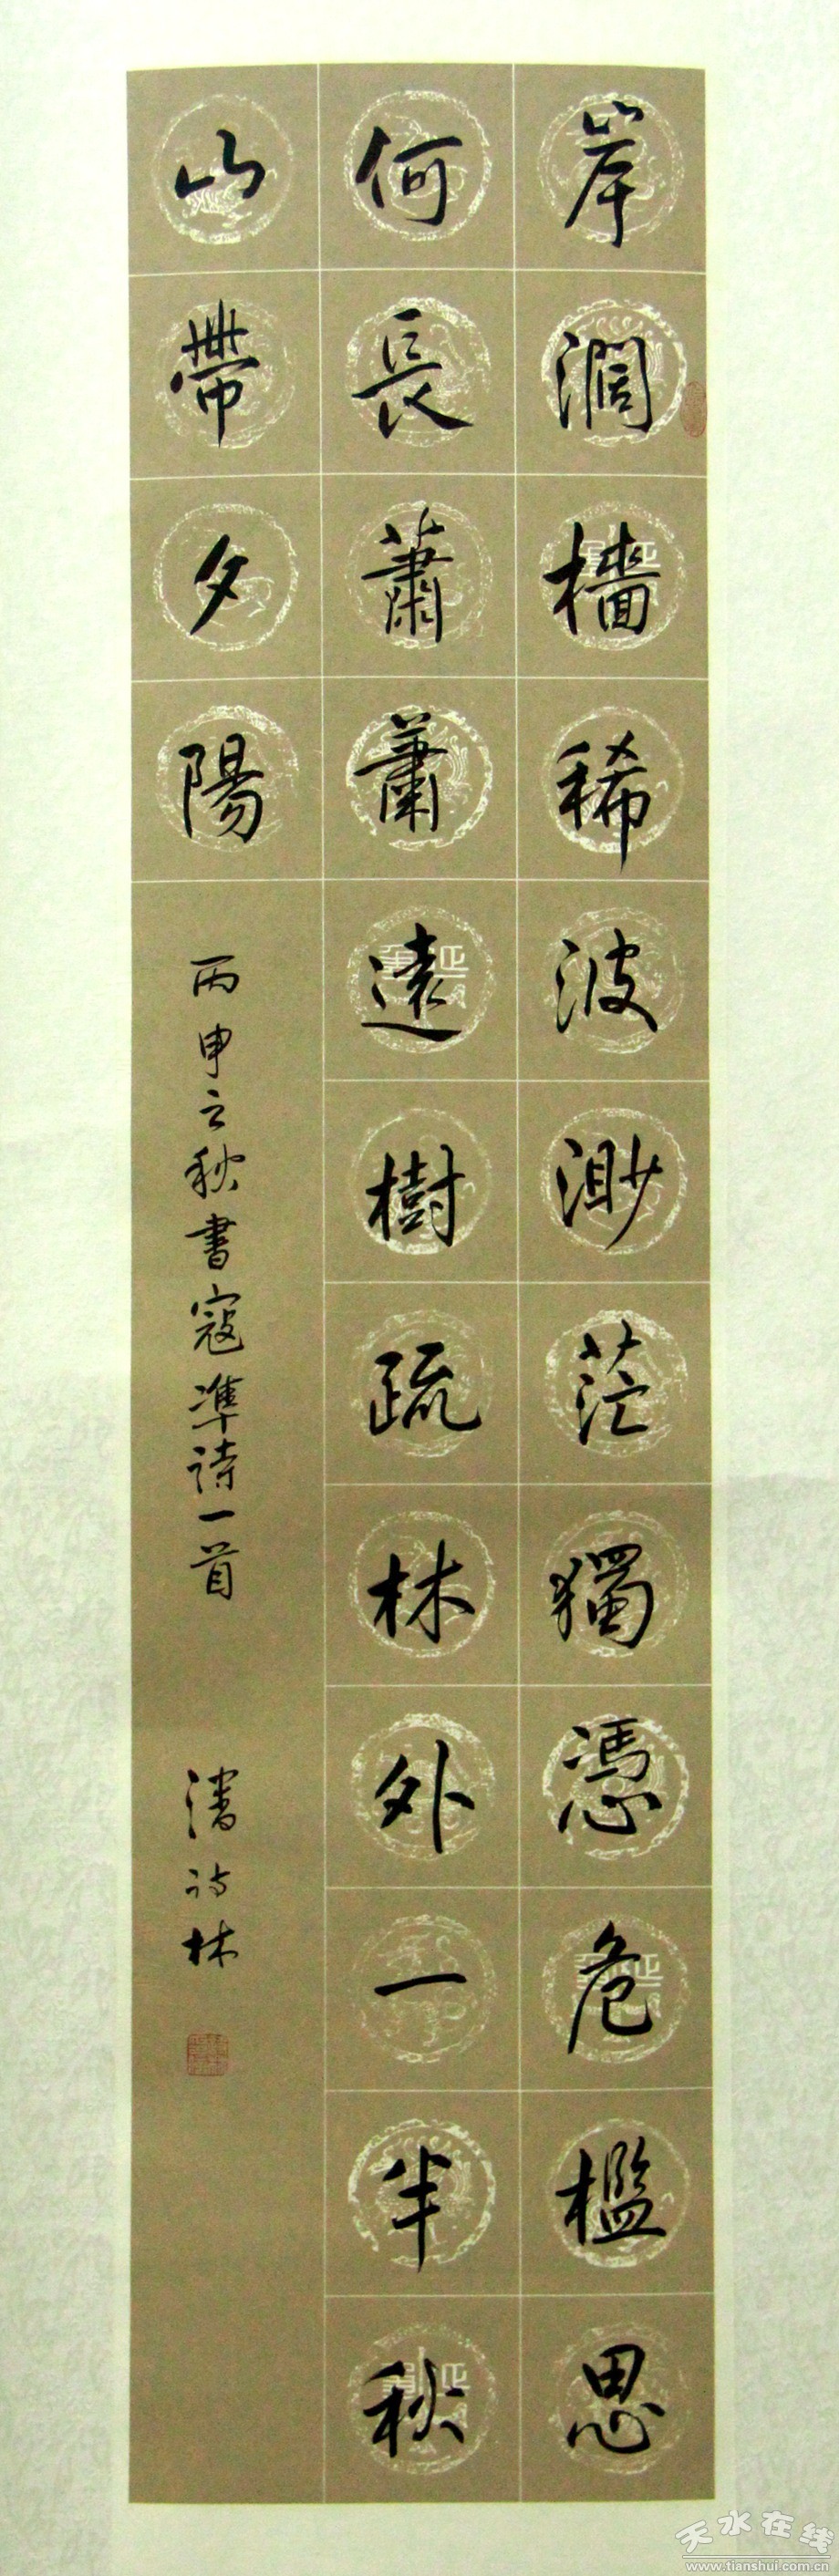 岸濶樯稀波渺茫獨憑危檻思
何長蕭蕭遠樹疏林外一半秋
山帶夕陽
丙申之秋書寇準詩一首
潘詩林
天水在线
www.tianshui.com.cn